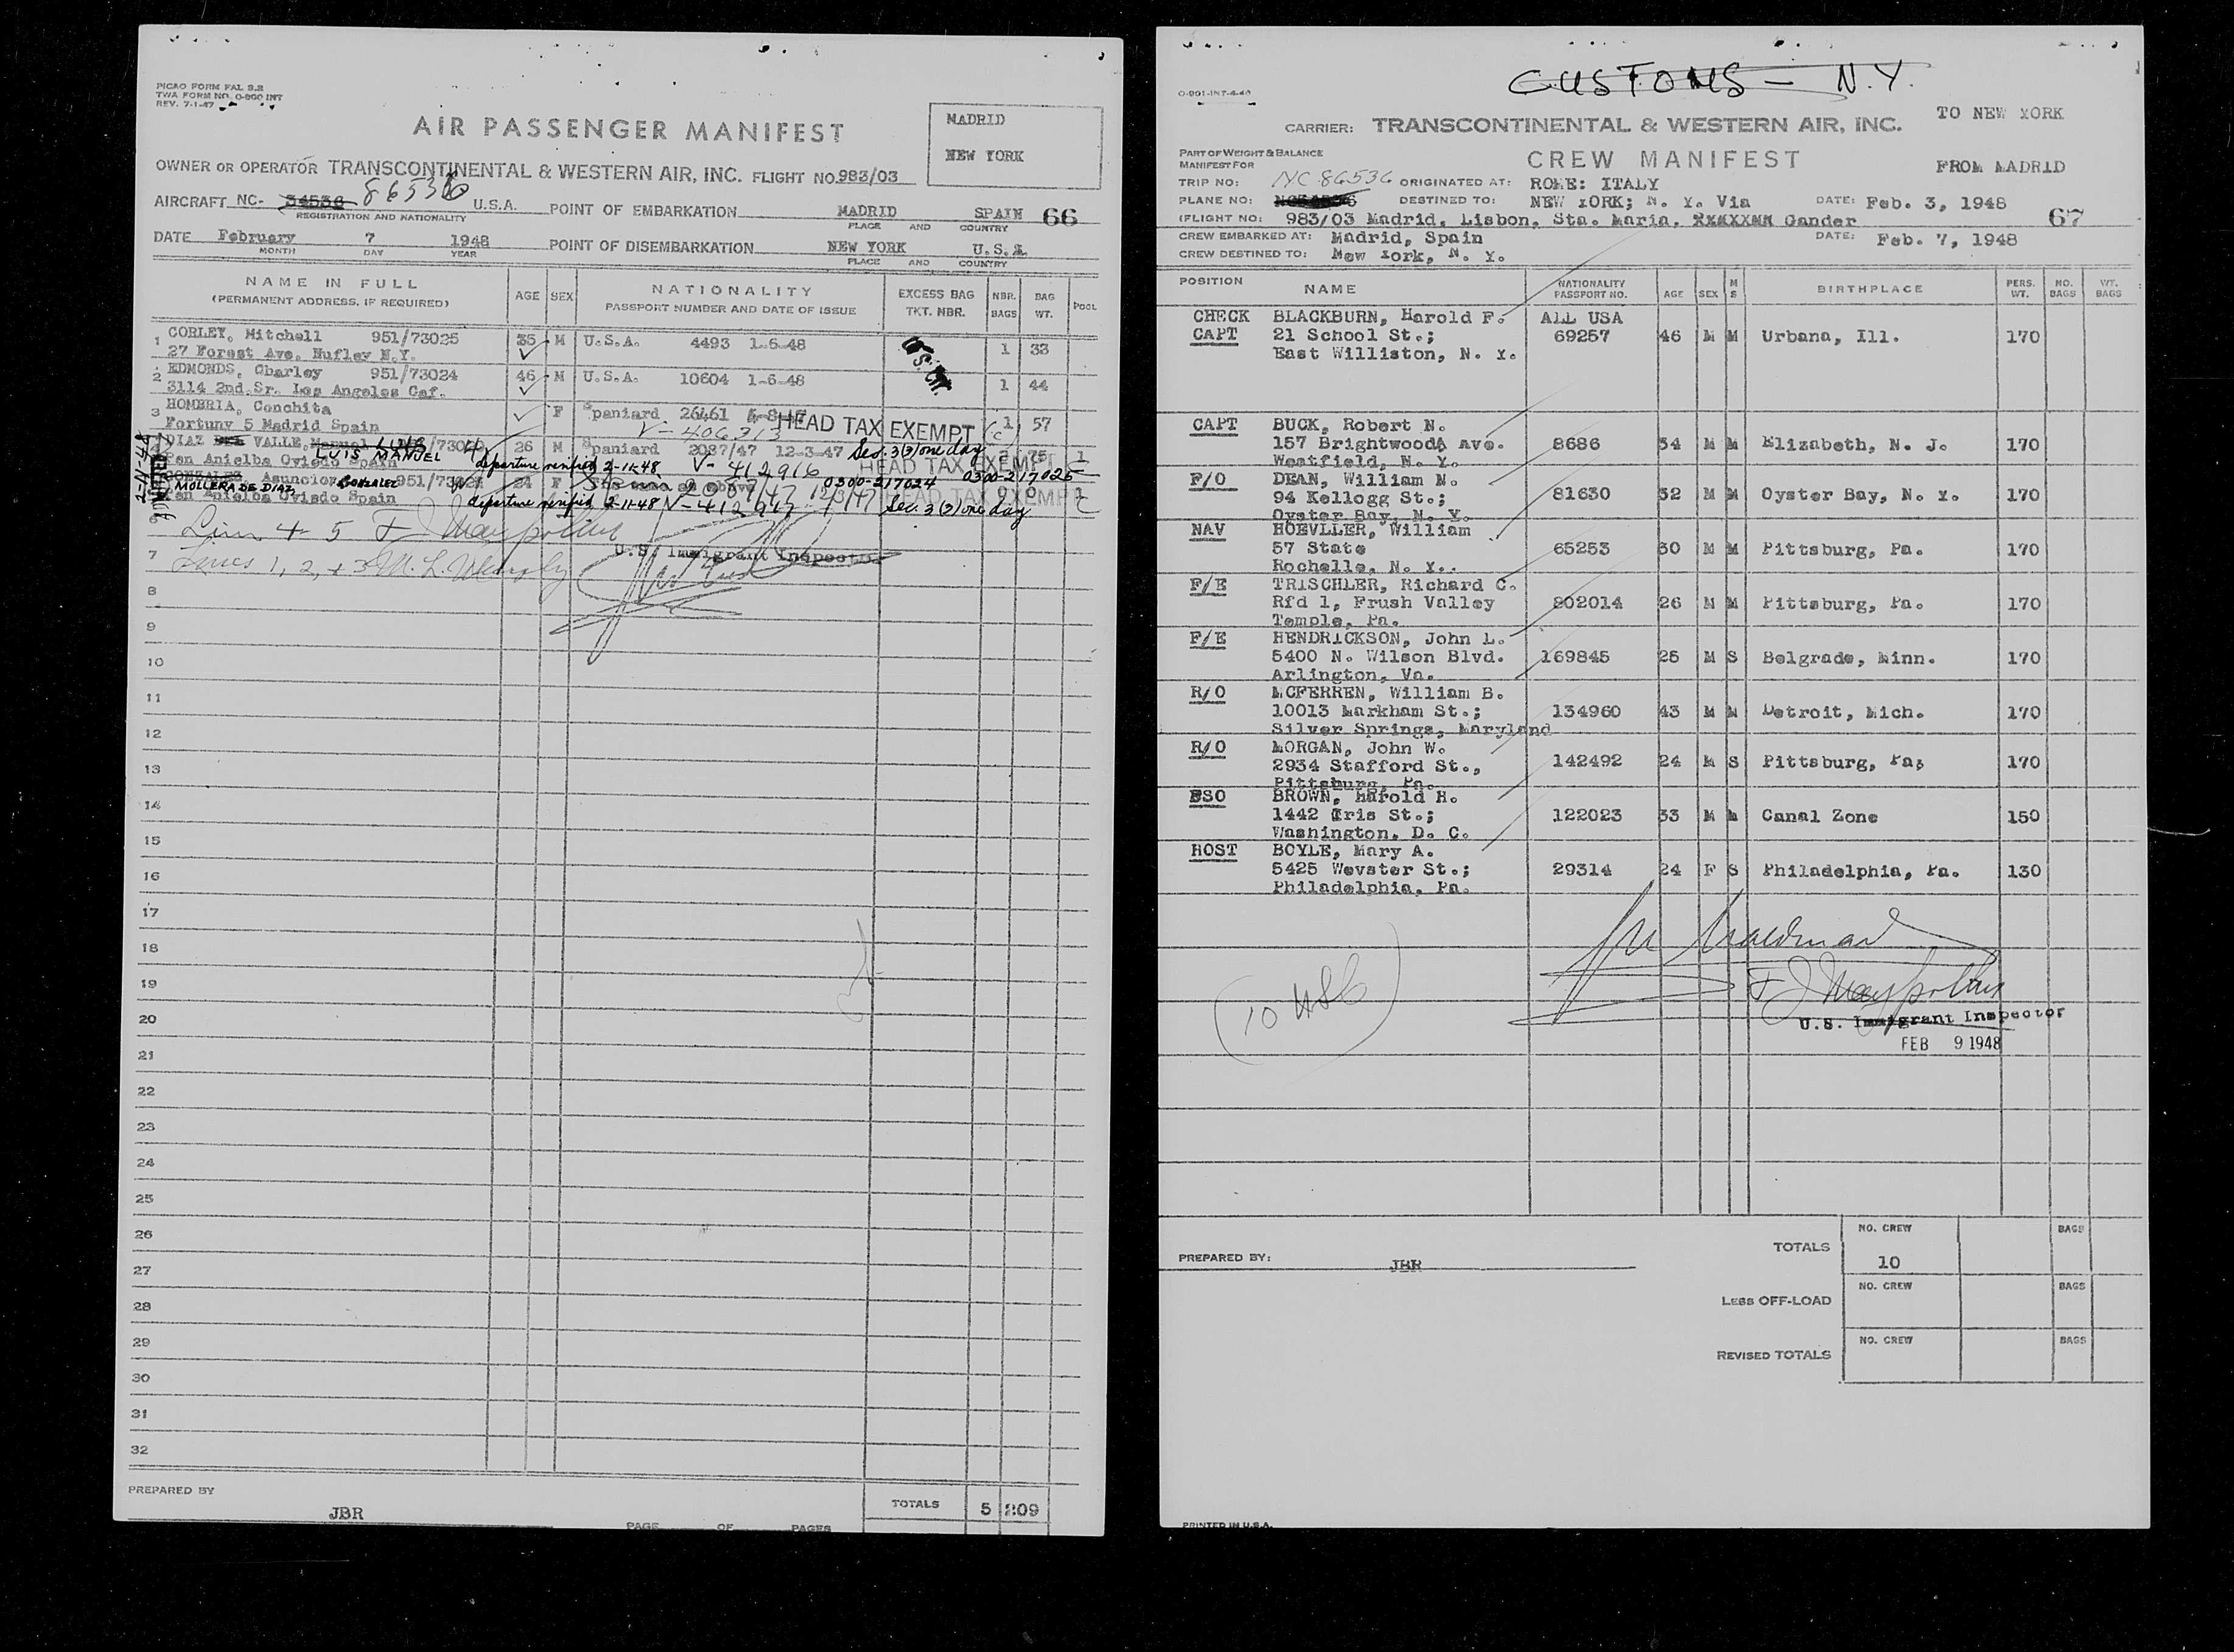 PICAO FORM FAL S.2
TWA FORM NO. O-900 INT
REV. 7-1-47
AIR PASSENGER MANIFEST
MADRID
NEW YORK
OWNER OR OPERATOR TRANSCONTINENTAL & WESTERN AIR, INC. FLIGHT NO. 983/03
AIRCRAFT NC- 34536 86536 U.S.A. POINT OF EMBARKATION MADRID SPAIN 66
REGISTRATION AND NATIONALITY PLACE AND COUNTRY
DATE February 7 1948 POINT OF DISEMBARKATION NEW YORK U.S.A.
MONTH DAY YEAR PLACE AND COUNTRY
NAME IN FULL AGE SEX NATIONALITY EXCESS BAG NBR. BAG POOL
(PERMANENT ADDRESS. IF REQUIRED) PASSPORT NUMBER AND DATE OF ISSUE TKT. NBR. BAGS WT.
1 CORLEY, Mitchell 951/73025 35 M U.S.A. 4493 1-6-48 1 33
27 Forest Ave. Nufley N.Y.
U.S. CIT.
2 EDMONDS, Charley 951/73024 46 M U.S.A. 10604 1-6-48 1 44
3114 2nd Sr. Los Angeles Caf.
3 HOMBRIA, Conchita F Spaniard 26461 HEAD TAX EXEMPT (c) 1 57
Fortuny 5 Madrid Spain V-406313
DIAZ DEL VALLE, Manuel LUIS 26 M Spaniard 2087/47 12-3-47 Sec. 3(2) one day 2 75 1
LUIS MANUEL
Pen Anielba Oviedo Spain departure verified 2-11-48 V-412916 HEAD TAX EXEMPT
ADMITTED 2-11-48
GONZALEZ, Asuncion GONZALEZ 951/73021 24 F 0300-217024 0300-217025
MOLLERA DE DIAZ
Pen Anielba Oviedo Spain departure verified 2-11-48 HEAD TAX EXEMPT Sec. 3(2) one day
6 Lines 4 + 5
U.S. Immigrant Inspector
7 Lines 1, 2, + 3 M. L.
8
9
10
11
12
13
14
15
16
17
18
19
20
21
22
23
24
25
26
27
28
29
30
31
32
PREPARED BY JBR TOTALS 5 209
PAGE OF PAGES
CUSTOMS - N.Y.
O-901-INT-4-46
TO NEW YORK
CARRIER: TRANSCONTINENTAL & WESTERN AIR, INC.
PART OF WEIGHT & BALANCE
MANIFEST FOR
CREW MANIFEST FROM MADRID
TRIP NO: NC 86536 ORIGINATED AT: ROME: ITALY
PLANE NO: DESTINED TO: NEW YORK; N. Y. Via DATE: Feb. 3, 1948
(FLIGHT NO: 983/03 Madrid, Lisbon, Sta. Maria, Gander 67
CREW EMBARKED AT: Madrid, Spain DATE: Feb. 7, 1948
CREW DESTINED TO: New York, N. Y.
POSITION NAME NATIONALITY PASSPORT NO. AGE SEX M S BIRTHPLACE PERS. WT. NO. BAGS WT. BAGS
CHECK BLACKBURN, Harold F. ALL USA
CAPT 21 School St.; 69257 46 M M Urbana, Ill. 170
East Williston, N. Y.
CAPT BUCK, Robert N.
157 Brightwood Ave. 8686 34 M M Elizabeth, N. J. 170
Westfield, N. Y.
F/O DEAN, William N.
94 Kellogg St.; 81630 32 M M Oyster Bay, N. Y. 170
Oyster Bay, N. Y.
NAV HOEVLLER, William
57 State 65253 30 M M Pittsburg, Pa. 170
Rochelle, N. Y..
F/E TRISCHLER, Richard C.
Rfd 1, Frush Valley 802014 26 M M Pittsburg, Pa. 170
Temple, Pa.
F/E HENDRICKSON, John L.
5400 N. Wilson Blvd. 169845 25 M S Belgrade, Minn. 170
Arlington, Va.
R/O MCFERREN, William B.
10013 Markham St.; 134960 43 M M Detroit, Mich. 170
Silver Springs, Maryland
R/O MORGAN, John W.
2934 Stafford St., 142492 24 M S Pittsburg, Pa; 170
Pittsburg, Pa.
BSO BROWN, Harold H.
1442 Iris St.; 122023 33 M M Canal Zone 150
Washington, D. C.
HOST BOYLE, Mary A.
5425 Wevster St.; 29314 24 F S Philadelphia, Pa. 130
Philadelphia, Pa.
U.S. Immigrant Inspector
FEB 9 1948
NO. CREW BAGS
TOTALS 10
PREPARED BY: JBR
NO. CREW BAGS
LESS OFF-LOAD
NO. CREW BAGS
REVISED TOTALS
PRINTED IN U.S.A.